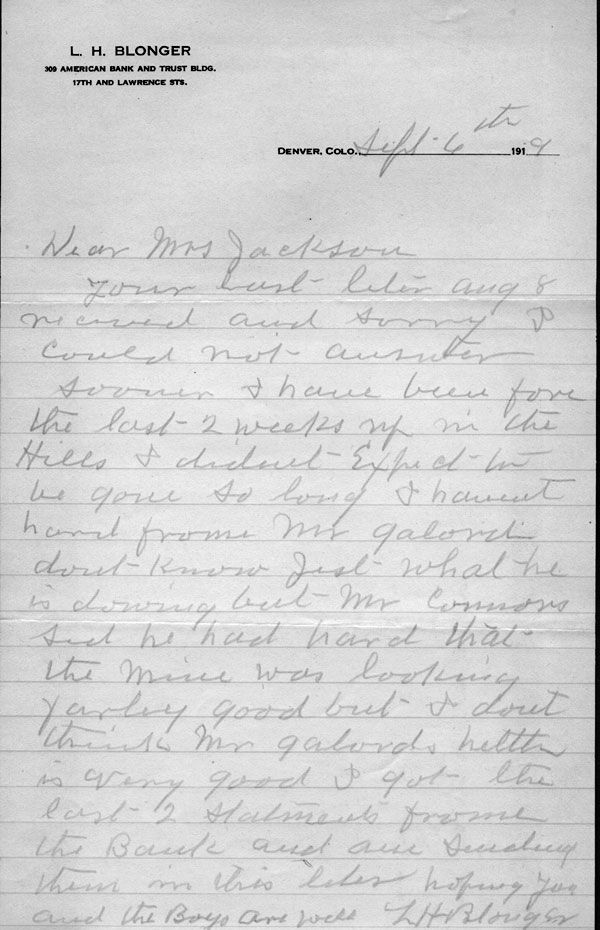 L. H. BLONGER
309 AMERICAN BANK AND TRUST BLDG.
17TH AND LAWRENCE STS.
DENVER, COLO., Sept 6th 1919
Dear Mrs Jackson
your last leter aug 8
received and sorry I
could not answer
sooner I have been fore
the last 2 weeks up in the
Hills I dident Expect to
be gone so long I havent
hard frome Mr galord
dont know Jest what he
is dowing but Mr Connors
sed he had hard that
the mine was looking
farley good but I dont
think Mr galords helth
is very good I got the
last 2 statments frome
the Bank and am sending
them in this leter hoping you
and the Boys are well LH Blonger